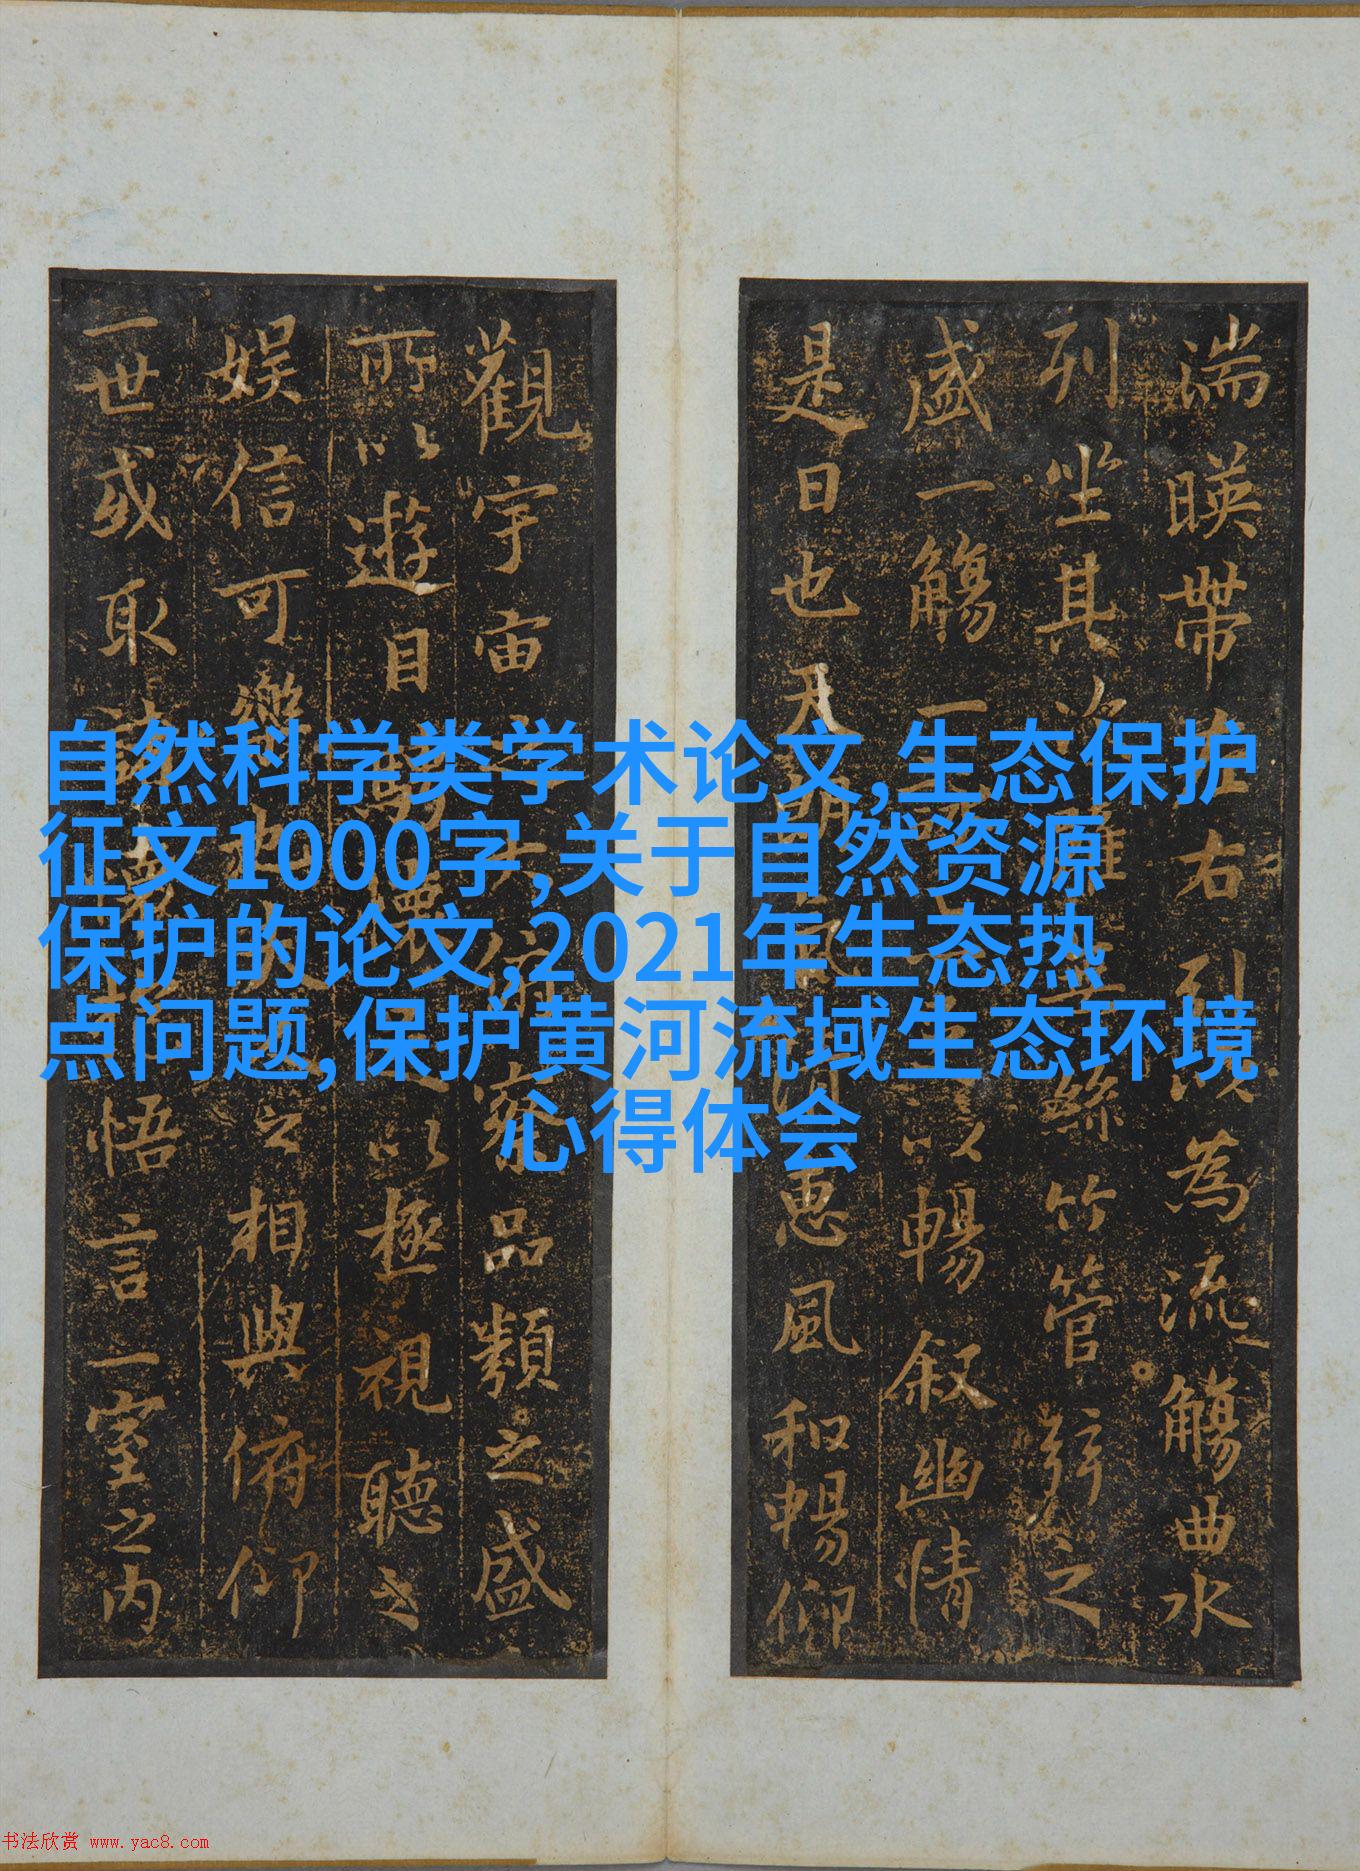 自然科学类学术论文,生态保护
征文1000字,关于自然资源
保护的论文,2021年生态热
点问题,保护黄河流域生态环境
心得体会
湍暎帶左右引以為流觴曲水
列坐其次雖無絲竹管弦之
盛一觴一以暢叙幽情
是日也天朗惠風和暢仰
觀宇宙俯察品類之盛
所以遊目騁懷以極視聽之
娛信可樂也夫之相與俯仰
一世或取諸懷悟言一室之内
书法欣赏 www.yac8.com